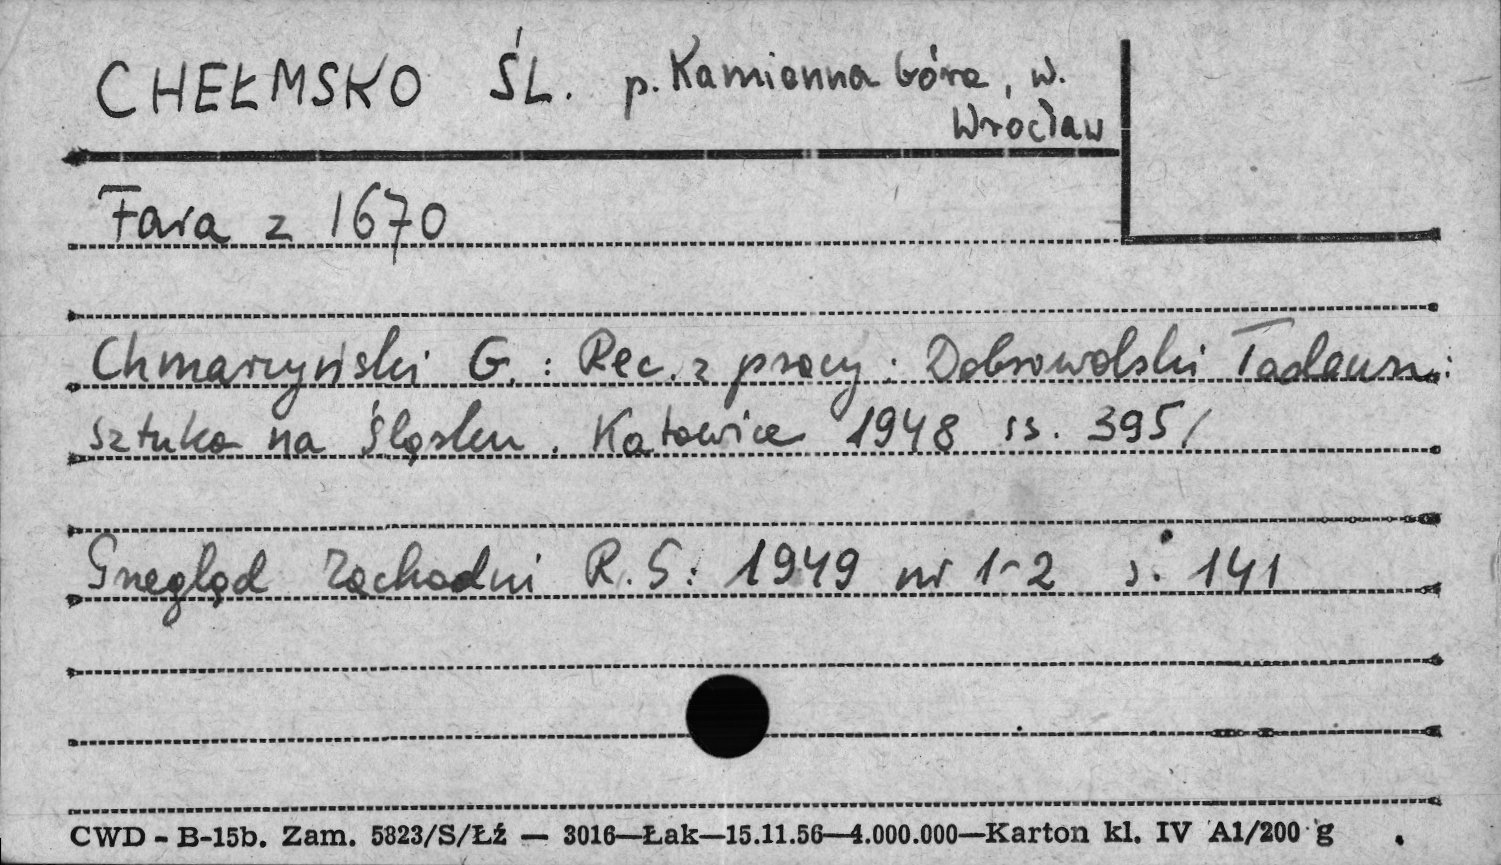 CHEŁMSKO ŚL. p. Kamienna Góra, w.
Wrocław
Fara z 1670
Chmarzyński G. : Rec. z pracy : Dobrowolski Tadeusz :
Sztuka na Śląsku. Katowice 1948 ss. 395/
Przegląd Zachodni R. 5: 1949 nr 1-2 s. 141
CWD - B-15b. Zam. 5823/S/Łź — 3016—Łak—15.11.56—4.000.000—Karton kl. IV A1/200 g